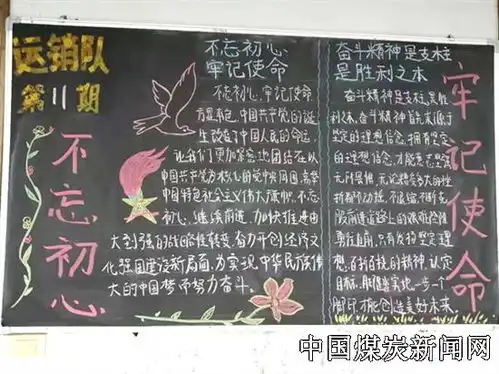 运销队
第11期
不忘初心
不忘初心
牢记使命
不忘初心,牢记使命
方是有色,中国共产党的诞
生改变了中国人民的命运,
让我们更加紧密地团结在以
中国共产党为核心的党中央周围,高举
中国特色社会主义伟大旗帜,不忘
初心,继续前进,加快推进由
大到强的战略性转变,奋力开创经济文
化强国建设新局面,为实现中华民族伟
大的中国梦而努力奋斗。
奋斗精神是支柱
是胜利之本
奋斗精神是支柱,是胜
利之本,奋斗精神首先源于
坚定的理想信念,拥有坚定
的理想信念,才能意志坚强
无所畏惧,无论
勇往直前,只有发扬坚定理
想、百折不挠的精神,认定
目标,用脚踏实地一步一个
脚印,才能创造美好未来。
牢记使命
中国煤炭新闻网